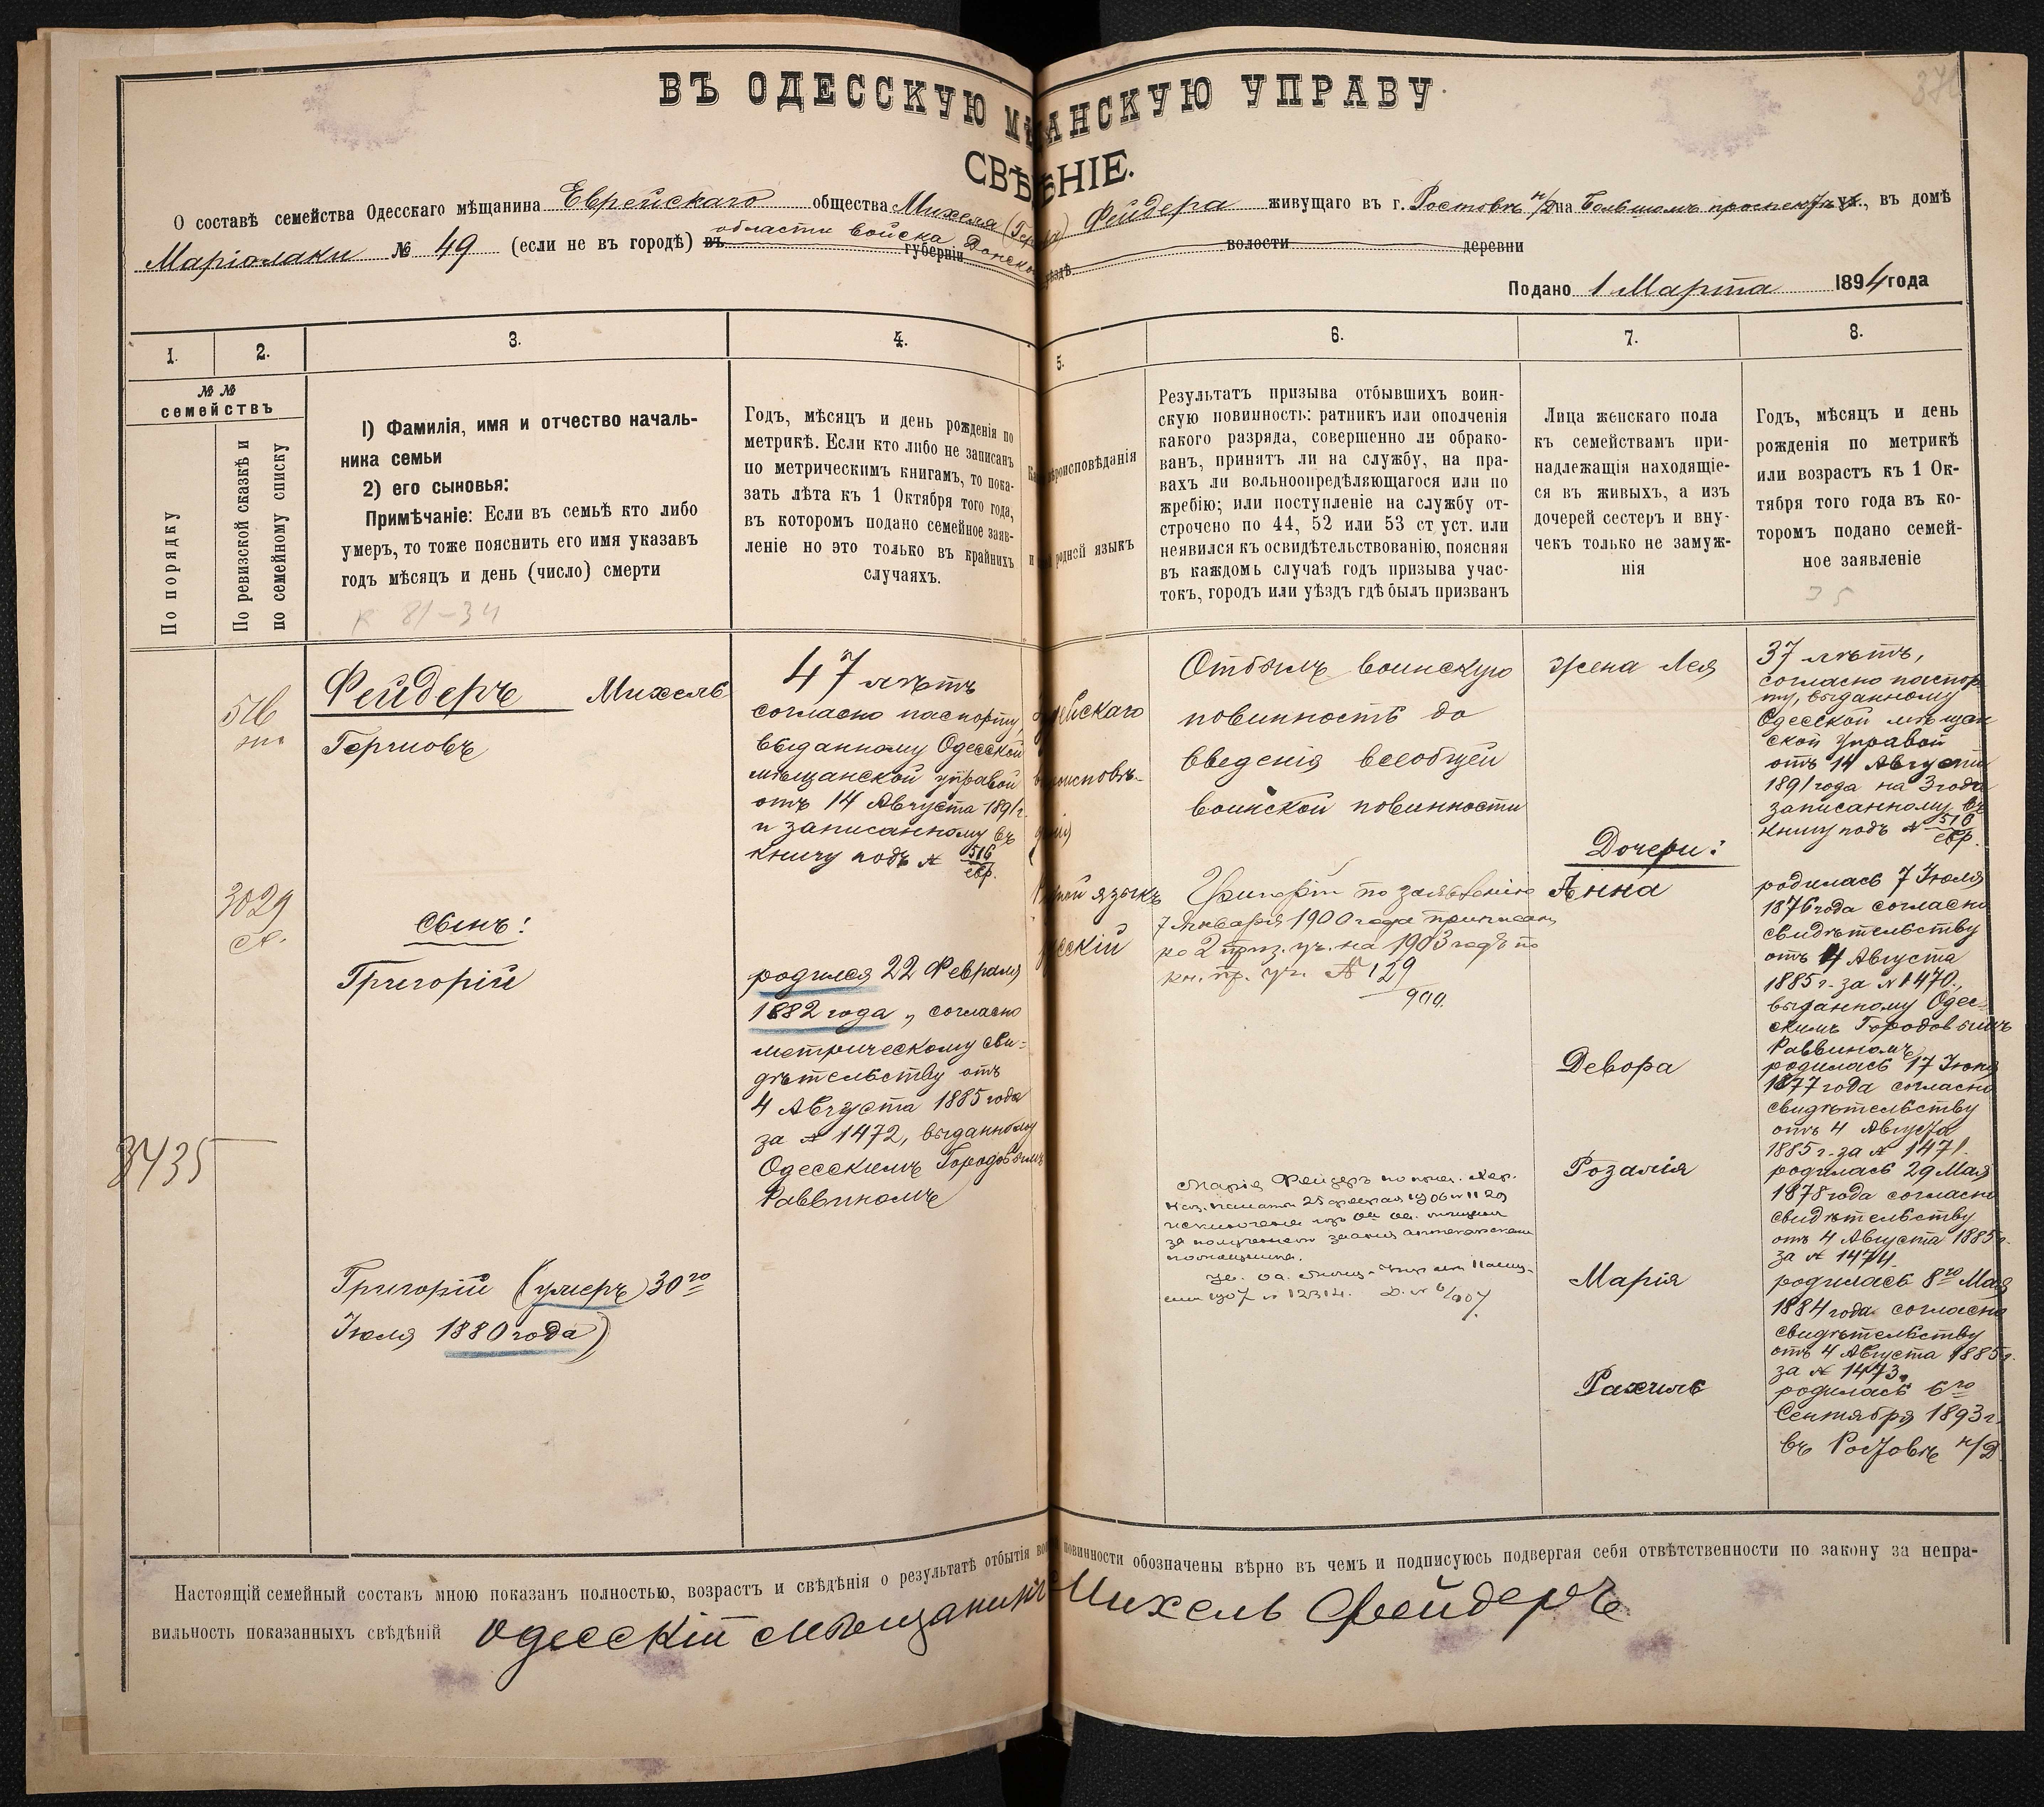 ВЪ ОДЕССКУЮ МѢЩАНСКУЮ УПРАВУ
СВѢДѢНІЕ.
О составѣ семейства Одесскаго мѣщанина Еврейскаго общества Михеля Фейдера живущаго въ г. Ростовѣ н/Д на Большомъ проспектѣ ул., въ домѣ
Маріолаки № 49 (если не въ городѣ) въ области войска Донского губерніи уѣздѣ волости деревни
Подано 1 Марта 1894 года
1. 2. 3. 4. 5. 6. 7. 8.
№ №
семействъ
По порядку
По ревизской сказкѣ и
по семейному списку
1) Фамилія, имя и отчество началь-
ника семьи
2) его сыновья:
Примѣчаніе: Если въ семьѣ кто либо
умеръ, то тоже пояснить его имя указавъ
годъ мѣсяцъ и день (число) смерти
81-34
Годъ, мѣсяцъ и день рожденія по
метрикѣ. Если кто либо не записанъ
по метрическимъ книгамъ, то пока-
зать лѣта къ 1 Октября того года,
въ которомъ подано семейное заяв-
леніе но это только въ крайнихъ
случаяхъ.
вѣроисповѣданія
и родной языкъ
Результатъ призыва отбывшихъ воин-
скую повинность: ратникъ или ополченія
какого разряда, совершенно ли обрако-
ванъ, принятъ ли на службу, на пра-
вахъ ли вольноопредѣляющагося или по
жребію; или поступленіе на службу от-
строчено по 44, 52 или 53 ст уст. или
неявился къ освидѣтельствованію, поясняя
въ каждомъ случаѣ годъ призыва учас-
токъ, городъ или уѣздъ гдѣ былъ призванъ
Лица женскаго пола
къ семействамъ при-
надлежащія находящіе-
ся въ живыхъ, а изъ
дочерей сестеръ и вну-
чекъ только не замуж-
нія
Годъ, мѣсяцъ и день
рожденія по метрикѣ
или возрастъ къ 1 Ок-
тября того года въ ко-
торомъ подано семей-
ное заявленіе
35
516
3029
3435
Фейдеръ Михель
Гершовъ
Сынъ:
Григорій
Григорій (умеръ 30го
Іюля 1880 года)
47 лѣтъ
согласно паспорту,
выданному Одесской
мѣщанской управой
отъ 14 Августа 1891 г.
и записанному въ
книгу подъ № 516
евр.
родился 22 Февраля
1882 года, согласно
метрическому сви-
дѣтельству отъ
4 Августа 1885 года
за № 1472, выданному
Одесскимъ Городовымъ
Раввиномъ
Отбылъ воинскую
повинность до
введенія всеобщей
воинской повинности
Григорій по заявленію
7 Января 1900 года приписанъ
ко 2 приз. уч. на 1903 годъ по
кн. пр. уч. № 129
900.
Марія Фейдеръ
за полученіемъ званія аптекарской
помощницы.
1907 № 12314.
жена Лея
Дочери:
Анна
Девора
Розалія
Марія
Рахиль
37 лѣтъ,
согласно паспор-
ту, выданному
Одесской мѣщан
ской Управой
отъ 14 Августа
1891 года на 3 года
записанному въ
книгу подъ № 516
евр.
родилась 7 Іюля
1876 года согласно
свидѣтельству
отъ 4 Августа
1885 г. за № 1470,
выданному Одес-
скимъ Городовымъ
Раввиномъ
родилась 17 Іюня
1877 года согласно
свидѣтельству
отъ 4 Августа
1885 г. за № 1471.
родилась 29 Мая
1878 года согласно
свидѣтельству
отъ 4 Августа 1885 г.
за № 1474.
родилась 8го Мая
1884 года согласно
свидѣтельству
отъ 4 Августа 1885 г.
за № 1473.
родилась 6го
Сентября 1893 г.
въ Ростовѣ н/Д
Настоящій семейный составъ мною показанъ полностью, возрастъ и свѣдѣнія о результатѣ отбытія повинности обозначены вѣрно въ чемъ и подписуюсь подвергая себя отвѣтственности по закону за непра-
вильность показанныхъ свѣдѣній Одесскій мѣщанинъ Михель Фейдеръ